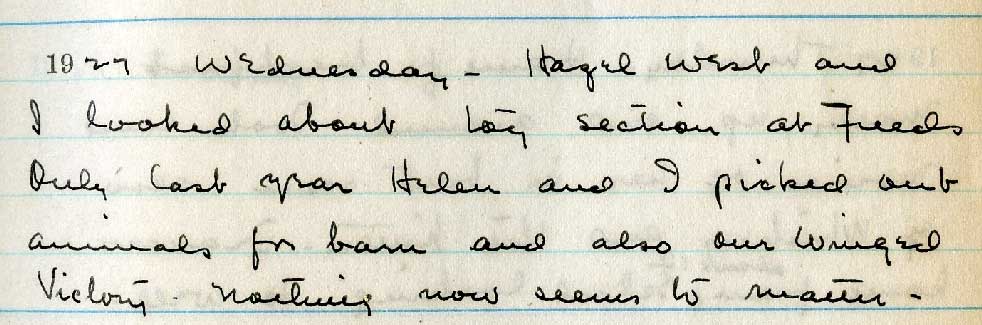 1927 Wednesday - Hazel West and
I looked about toy section at Freeds
Only last year Helen and I picked out
animals for barn and also our Winged
Victory - nothing now seems to matter -